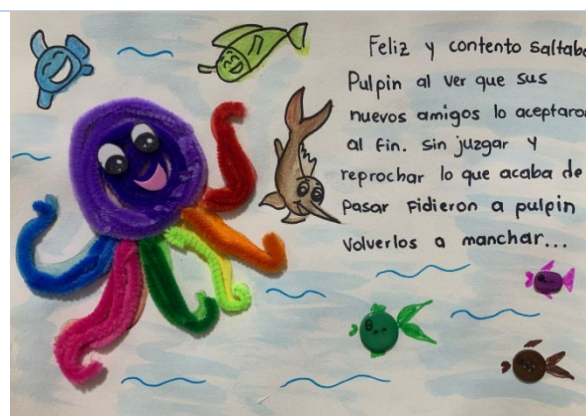 Feliz y contento saltaba
Pulpin al ver que sus
nuevos amigos lo aceptaron
al Fin. sin juzgar y
reprochar lo que acaba de
Pasar Pidieron a pulpin
Volverlos a manchar...